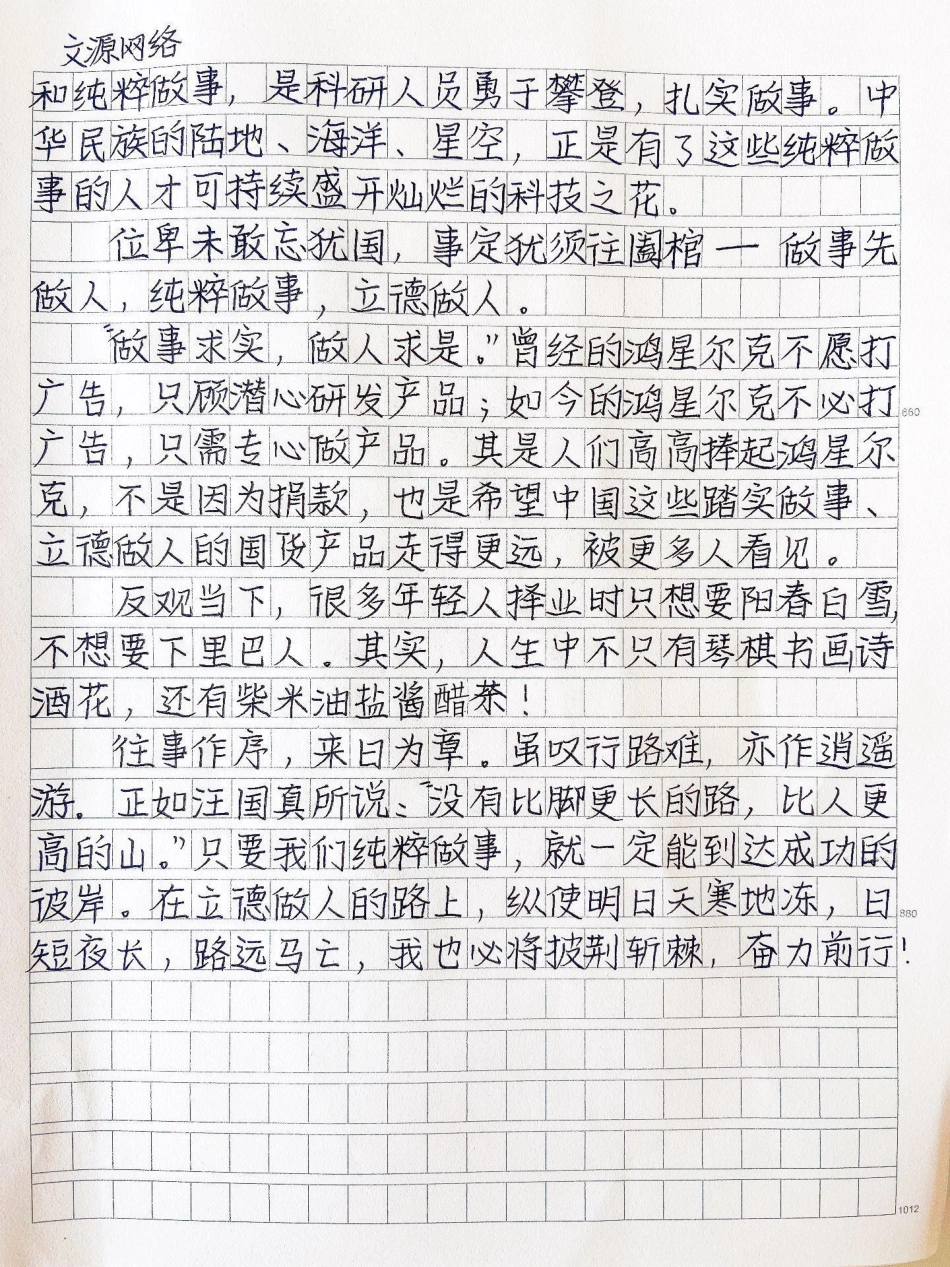 文源网络
和纯粹做事，是科研人员勇于攀登，扎实做事。中
华民族的陆地、海洋、星空，正是有了这些纯粹做
事的人才可持续盛开灿烂的科技之花。
位卑未敢忘犹国，事定犹须往阖棺一做事先
做人，纯粹做事，立德做人。
“做事求实，做人求是。”曾经的鸿星尔克不愿打
广告，只顾潜心研发产品；如今的鸿星尔克不必打
660
广告，只需专心做产品。其是人们高高捧起鸿星尔
克，不是因为捐款，也是希望中国这些踏实做事、
立德做人的国货产品走得更远，被更多人看见。
反观当下，很多年轻人择业时只想要阳春白雪，
不想要下里巴人。其实，人生中不只有琴棋书画诗
酒花，还有柴米油盐酱醋茶！
往事作序，来日为章。虽叹行路难，亦作逍遥
游。正如汪国真所说：“没有比脚更长的路，比人更
高的山。”只要我们纯粹做事，就一定能到达成功的
彼岸。在立德做人的路上，纵使明日天寒地冻，日
880
短夜长，路远马亡，我也必将披荆斩棘，奋力前行！
1012